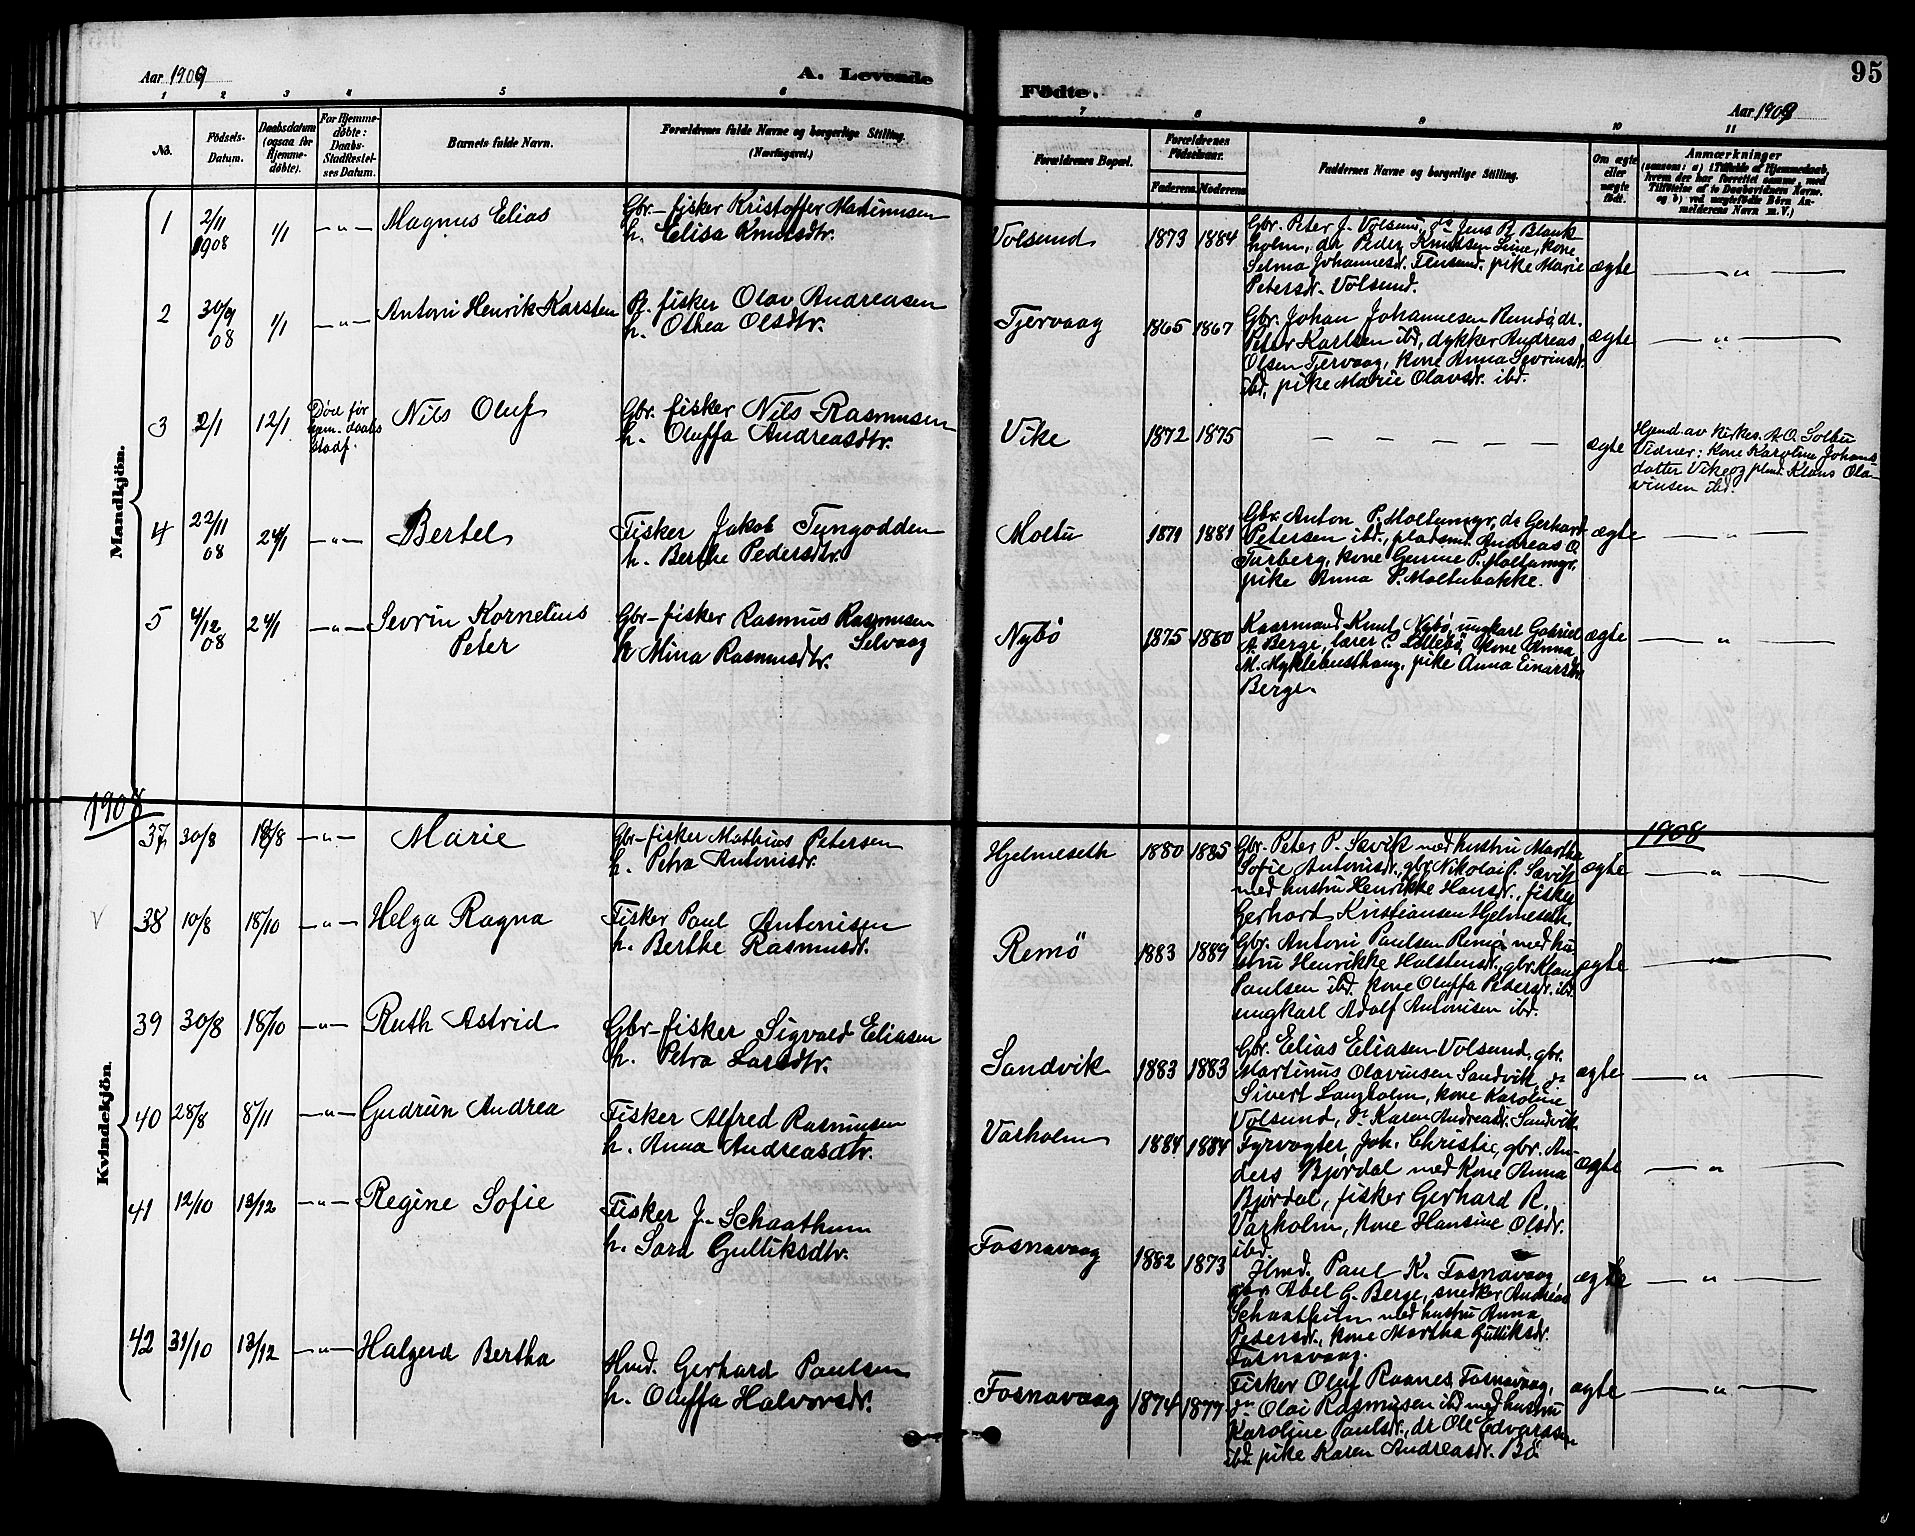 Aar 1909
A. Levende
Födte.
95
Aar 1909
1 2 3 4 5 6 7 8 9 10 11
No.
Födsels-
Datum.
Daabsdatum
(ogsaa for
Hjemme-
døbte).
For Hjemme-
døbte:
Daabs-
Stadfæstel-
ses Datum.
Barnets fulde Navn.
Forældrenes fulde Navne og borgerlige Stilling.
(Næringsvei.)
Forældrenes Bopæl.
Forældrenes
Fødselsaar.
Faderens. Moderens.
Faddernes Navne og borgerlige Stilling.
Om ægte
eller
uægte
født.
Anmærkninger
(saasom: a) i Tilfælde af Hjemmedaab,
hvem der har forrettet samme, med
Tilföielse af to Daabsvidners Navne,
og b) ved uægtefødte Börn An-
melderens Navn m. V.)
Mandkjön.
1
2/11
1908
1/1
— " —
Magnus Elias
Gbr-fisker Kristoffer Martinusen
h. Elisa Knutsdtr.
Volsund
1873 1884
Gbr. Peter J. Volsund, do Jens P. Blank
holm, do Peder Knutsen Leine, kone
Selma Johannesdr. Flusund, pike Marie
Petersdr. Volsund.
ægte
— " —
2
30/9
08
1/1
— " —
Antoni Henrik Karsten
Pl. fisker Olav Andreasen
h. Othea Olsdtr.
Tjervaag
1865 1867
Gbr. Johan Johannesen Remö, dr.
Peter Karlsen ibd, dykker Andreas
Olsen Tjervaag, kone Anna Sevrinsdr.
ibd, pike Marie Olavsdr. ibd.
ægte
— " —
3
2/1
12/1
Död før
hjem-daabs
stadf.
Nils Oluf
Gbr. fisker Nils Rasmusen
h. Oluffa Andreasdtr.
Vike
1872 1875
— — — — —
ægte
Hjemd. av kirkes. A.O. Solbu
Vidner: kone Karoline Johans
datter Vike og plmd. Klaus Ola
vinsen ibd.
4
22/11
08
24/1
— " —
Bertel
Fisker Jakob Tungodden
h. Berthe Pedersdtr.
Moltu
1879 1881
Gbr. Anton P. Moltumyr, do Gerhard
Petersen ibd., pladsmd. Andreas O.
Tarberg, kone Gurine P. Moltumyr,
pike Anna P. Moltubakke.
ægte
— " —
5
4/12
08
24/1
— " —
Sevrin Kornelius
Peter
Gbr-fisker Rasmus Rasmusen
Selvaag
h Mina Rasmusdtr.
Nybö
1875 1880
Kaarmand Knut Nybø, ungkarl Gabriel
A. Berge, lærer P. Lillebö, kone Anna
M. Myklebusthaug, pike Anna Einarsdtr
Berge.
ægte
— " —
1908
1908
Kvindekjön.
37
30/8
18/8
— " —
Marie
Gbr-fisker Mathias Petersen
h. Petra Antonisdr.
Hjelmeseth
1880 1885
Gbr. Peter P. Sævik med hustru Martha
Sofie Antonisdr, gbr Nikolai P. Sævik
med hustru Henrikke Hansdr., fisker
Gerhard Kristiansen Hjelmeseth
ægte
— " —
V
38
10/8
18/10
— " —
Helga Ragna
Fisker Paul Antonisen
h. Berthe Rasmusdr.
Remö
1883 1889
Gbr. Antoni Paulsen Remö med hu
stru Henrikke Halstensdr., gbr. Klaus
Paulsen ibd. kone Oluffa Pedersdr. ibd.
ungkarl Adolf Antonisen ibd.
ægte
— " —
39
30/8
18/10
— " —
Ruth Astrid
Gbr-fisker Sigvald Eliasen
h. Petra Larsdtr.
Sandvik
1883 1883
Gbr. Elias Eliasen Volsund, gbr.
Martinus Olavinsen Sandvik, do
Sivert Langholm, kone Karoline
Volsund, do Karen Andreasdr. Sandvik
ægte
— " —
40
28/8
8/11
— " —
Gudrun Andrea
Fisker Alfred Rasmusen
h. Anna Andreasdtr.
Varholm
1884 1884
Fyrvogter Joh. Christie, gbr. An-
ders Bjørdal med kone Anna
Bjørdal, fisker Gerhard R.
Varholm, kone Hansine Olsdr.
ibd.
ægte
— " —
41
12/10
13/12
— " —
Regine Sofie
Fisker J. Schaathun
h. Sara Gulliksdtr.
Fosnavaag
1882 1873
Hmd. Paul K. Fosnavaag,
gbr. Abel G. Berge, snedker Andreas
Schaathun med hustru Anna
Pedersdr., kone Martha Gulliksdr.
Fosnavaag.
ægte
— " —
42
31/10
13/12
— " —
Halgerd Bertha
Hmd. Gerhard Paulsen
h. Oluffa Halvorsdr.
Fosnavaag
1874 1877
Fisker Oluf Raanes Fosnavaag,
do Olai Rasmusen ibd med hustru
Karoline Paulsdr., dr Ole Edvardsen
ibd. pike Karen Andreasdr. Bö
ægte
— " —